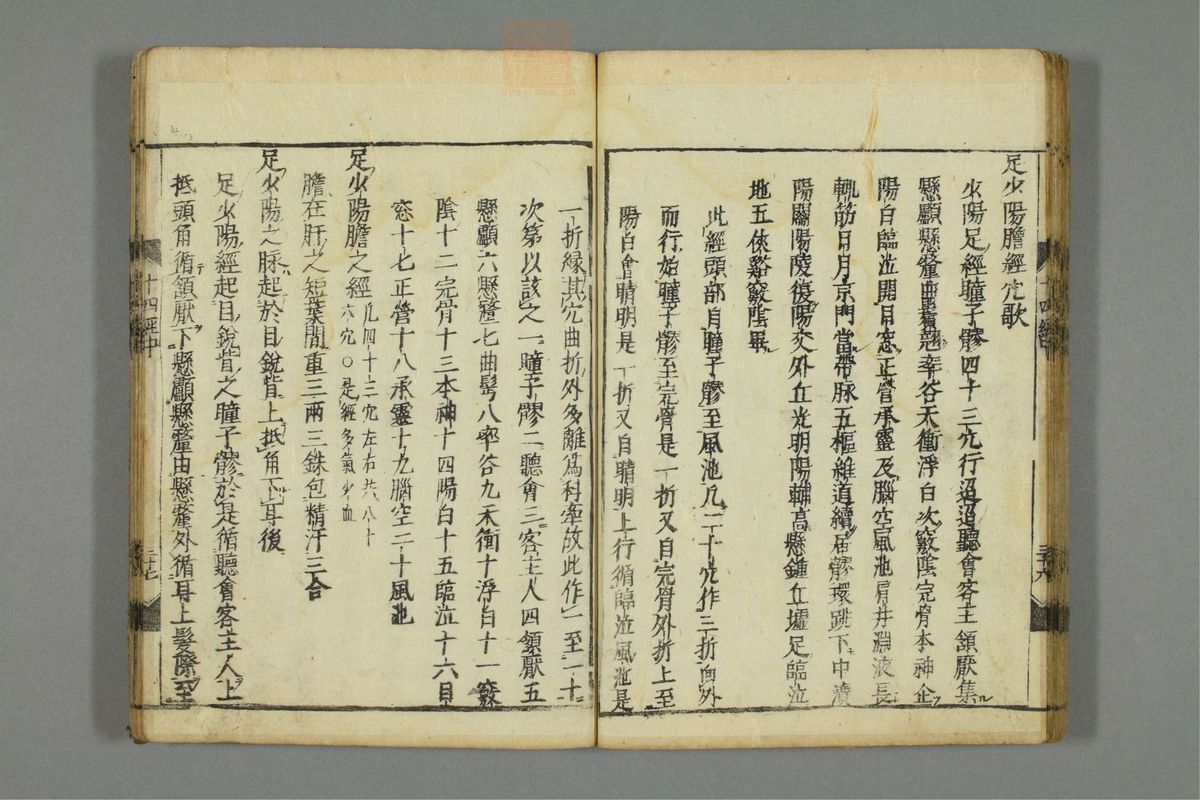 足少陽膽經穴歌
少陽足經瞳子髎四十三穴行迢迢聽會客主頷厭集
懸顱懸釐曲鬢翹率谷天衝浮白次竅陰完骨本神企
陽白臨泣開目窓正營承靈及腦空風池肩井淵液長
輒筋日月京門當帶脉五樞維道續居髎環跳下中瀆
陽關陽陵復陽交外丘光明陽輔高懸鍾丘墟足臨泣
地五俠谿竅陰畢
此經頭部自瞳子髎至風池凡二十穴作三折向外
而行始瞳子髎至完骨是一折又自完骨外折上至
陽白會睛明是一折又自睛明上行循臨泣風池是
一折緣其穴曲折外多離爲科牽故此作一至二十
次第以該之一瞳子髎二聽會三客主人四頷厭五
懸顱六懸釐七曲髩八率谷九天衝十浮白十一竅
陰十二完骨十三本神十四陽白十五臨泣十六目
窓十七正營十八承靈十九腦空二十風池
足少陽膽之經 凡四十三穴左右共八十
六穴○是經多氣少血
膽在肝之短葉間重三兩三銖包精汁三合
足少陽之脉起於目銳眥上抵角下耳後
足少陽經起目銳眥之瞳子髎於是循聽會客主人上
抵頭角循頷厭下懸顱懸釐由懸釐外循耳上髮際至
十四經中
三十七